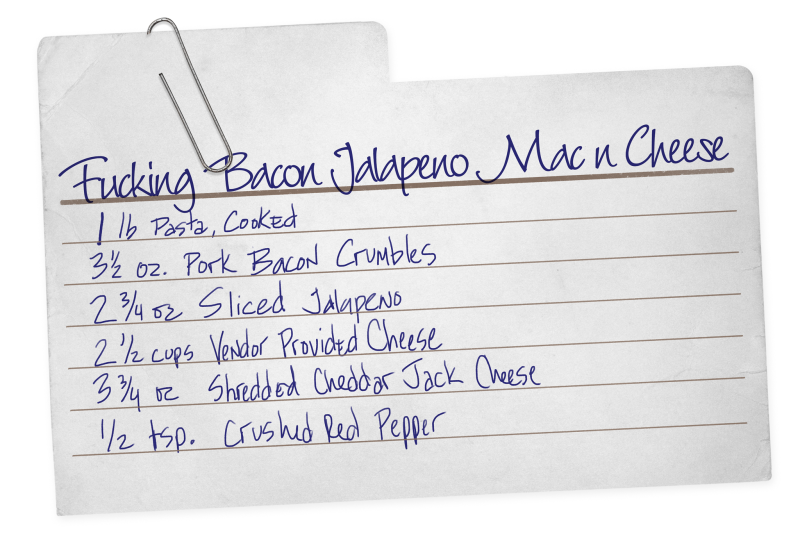 Fucking Bacon Jalapeno Mac n Cheese
1 lb Pasta, Cooked
3 1/2 oz. Pork Bacon Crumbles
2 3/4 oz Sliced Jalapeno
2 1/2 cups Vendor Provided Cheese
3 3/4 oz Shredded Cheddar Jack Cheese
1/2 tsp. Crushed Red Pepper